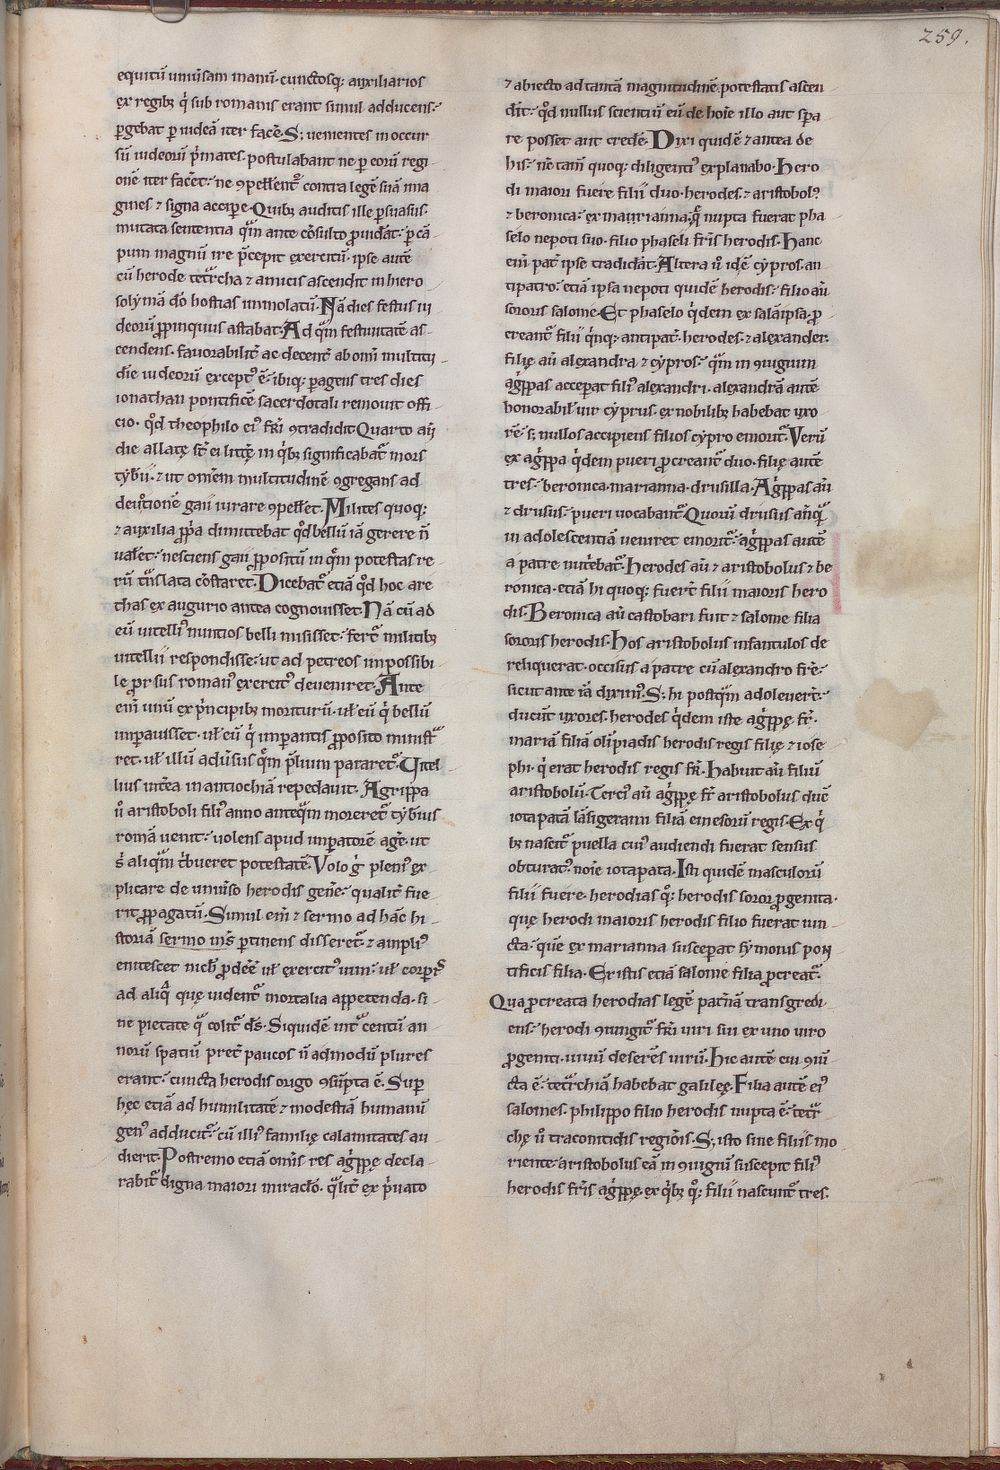 259.
equitū uniūsam manū. cunctosq; auxiliarios
ex regibꝫ q̇ sub romanis erant simul adducens.
ꝑgebat ꝑ iudeā iter facē. S; uenientes in occur
sū iudeorū p̄mates. postulabant ne ꝑ eorū regi
onē iter facēt. ne ꝯpellent᷑ contra legē suā ima
gines & signa accipe. Quibꝫ auditis ille ꝑsuasus.
mutata sententia q̄m ante cōsulto ꝓuidāt. ꝑ cā
pum magnū ire p̄cepit exercitū. ipse autē
cū herode tetrcha & amicis ascendit in hiero
solymā dō hostias immolatū. Nā dies festus iu
deorū ꝓpinquius astabat. Ad q̄m festiuitatē as
cendens. fauorabilit᷑ ac decent᷑ ab omī multitu
die iudeorū except᷒ ē. ibiq; ꝑagens tres dies
ionathan pontificē sacerdotali remouit offi
cio. qd̄ theophilo ei᷒ fr̄i ꝯtradidit. Quarto aū
die allatę st̄ ei littę in qb᷒ significabat᷑ mors
tyb̄ii. & ut omēm multitudinē ꝯgregans ad
deuōtionē gaii iurare ꝯpellet. Milites quoq;
& auxilia ꝓp̄a dimittebat qd̄ bellū iā gerere n̄
ualet. nesciens gaii ꝓpositū in q̄m potestas re
rū trslata cōstaret. Dicebat᷑ etiā qd̄ hoc are
thas ex augurio antea cognouisset. Nā cū ad
eū uitelli᷒ nuntios belli misisset. fert᷑ militibꝫ
uitellii respondisse. ut ad petreos impossibi
le prorsus roman᷒ exercit᷒ deueniret. Ante
em̄ unū ex p̄ncipibꝫ moriturū. uł eū q̇ bellū
impauisset. uł eū q̇ impantis ꝓposito ministr
ret. uł illū adūsus q̄m p̄lium pararet᷑. Vitel
lius int̄ea in antiochiā repedauit. Agrippa
ů aristoboli fili᷒ anno anteq̄m moreret᷑ tyb̄ius
romā uenit. uolens apud imꝑatorē agē. ut
ṡ aliq̄m t̄bueret potestatē. Volo g̊ pleni᷒ ex
plicare de uniuso herodis genē. qualit᷑ fue
rit ꝓpagatū. Simul em̄ & sermo ad hāc hi
storiā sermo mr̄s ꝑtinens disseret᷑. & ampli᷒
enitescet nich̄ ꝓdeē uł exercit᷒ uim. uł corpis
ad aliq̄ quę uident᷑ mortalia appetenda. si
ne pietate q̄ colit᷑ ds̄. Siquidē int᷑ centū an
norū spatiū pret᷑ paucos n̄ admodū plures
erant. cuncta herodis origo ꝯsūpta ē. Suꝑ
hęc etiā ad humilitatē & modestiā humanū
gen᷒ adducit᷑. cū illi᷒ familię calamitates au
dierit. Postremo etiā omīs res agppę decla
rabit᷑ digna maiori miraclō. qlit᷑ ex p̄uato
& abiecto ad tantā magnitudinē potestatis ascen
dit. qd̄ nullus scientiū eū de hoīe illo aut spa
re posset aut credē. Dixi quidē & antea de
his. nc̄ tam̄ quoq; diligenti᷒ explanabo. Hero
di maiori fuere filii duo. herodes. & aristobol᷒
& beronica. ex mariamna. q̄ nupta fuerat pha
selo nepoti suo. filio phaseli fr̄is herodis. Hanc
em̄ pat᷑ ipse tradidāt. Altera ů idē cypros. an
tipatro. etiā ipsa nepoti quidē herodis. filio aū
sororis salome. Et phaselo qdem ex salāipsa ꝓ
creant᷑ filii qnq; antipat᷑. herodes. & alexander.
filię aū alexandra & cypros. q̄m in ꝯiugium
agppas acceperat fili᷒ alexandri. alexandrā autē
honorabił uir cyprus. ex nobilibꝫ habebat uxo
rē. s; nullos accipiens filios cypro emorit᷑. Verū
ex agppa qdem pueri ꝓcreant᷑ duo. filię autē
tres. beronica. mariamna. drusilla. Agppas aū
& drusus. pueri uocabant᷑. Quorū drusus anq̄
in adolescentiā ueniret emorit᷑. agppas autē
a patre nut̄ebat᷑. Herodes aū & aristobolus & be
ronica. etiā hi quoq; fuert̄ filii maioris hero
dis. Beronica aū castobari fuit & salome filia
sororis herodis. Hos aristobolus infantulos de
reliquerat. occisus a patre cū alexandro frē.
sicut ante iā dixim᷒. S; hi postq̄m adoleuert̄.
ducunt uxores. herodes qdem iste agppę fr̄.
mariā filiā olīpiadis herodis regis filię & iose
phi. q̇ erat herodis regis fr̄. Habuit aū filiū
aristobolū. Terci᷒ aū agppę fr̄ aristobolus duc̄
iotapatā sāsigerami filiā emesorū regis. Ex q̇
bꝫ nascit᷑ puella cui᷒ audiendi fuerat sensus
obturat᷒. noīe iotapata. Isti quidē masculorū
filii fuere. herodias q̊; herodis soror progenita.
quę herodi maioris herodis filio fuerat iun
cta. que ex mariamna susceperat symonis pon
tificis filia. Ex istis etiā salome filia ꝓcreat᷑.
Qua procreata herodias legē pat̄nā transgredi
ens. herodi ꝯiungit᷑ fr̄i uiri sui ex uno uiro
ꝓgeniti. uiuū deserēs uirū. Hic autē cui ꝯiū
cta ē. tetrchiā habebat galileę. Filia autē ei᷒
salomes. philippo filio herodis nupta ē. tetr
chę ů traconitidis regiōis. S; isto sine filiis mo
riente. aristobolus eā in ꝯiugiū suscepit fili᷒
herodis fr̄is agppę. ex qb᷒ q̊; filii nascunt᷑ tres.